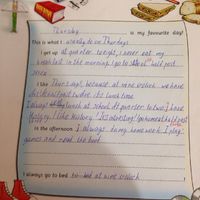 Thursday is my favourite day!
This is what I usually do on Thursdays
I get up at quarter to eight, I never eat my
breakfast in the morning. I go to school at half past
seven
I like Thursdays because at nine o'clock we have
half past twelve it's lunch time
I always lunch at school. At quarter to two I have
History. I like History. It's interesting! I go home at half past
In the afternoon I always do my homework. I play
games and read the book.
I always go to bed to bed at nine o'clock